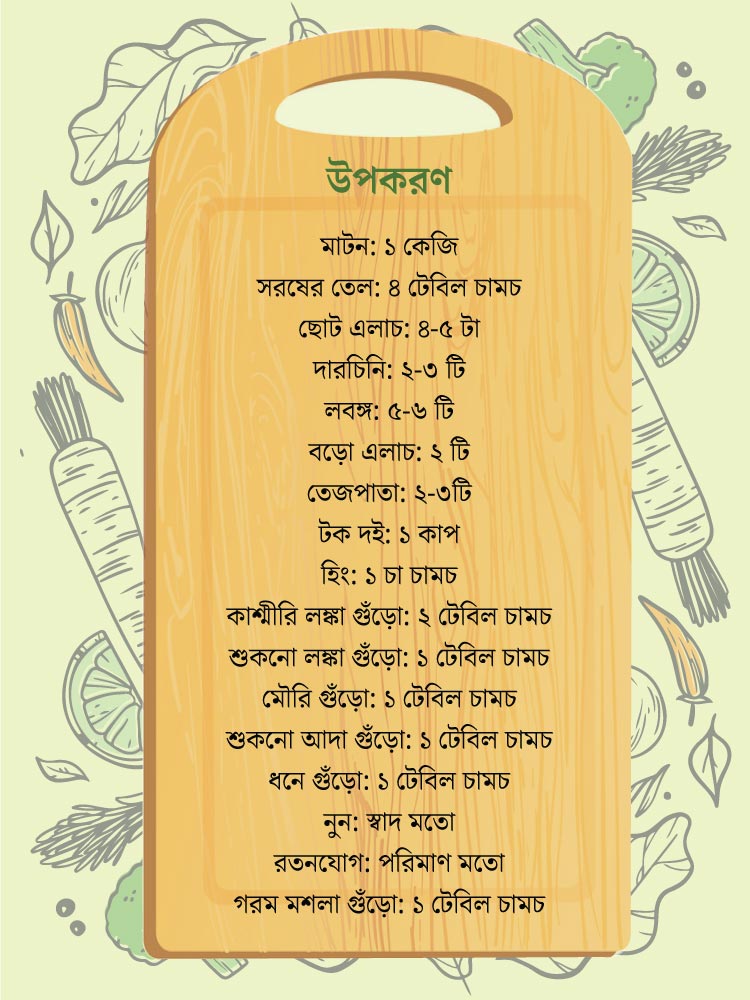 উপকরণ
মাটন: ১ কেজি
সরষের তেল: ৪ টেবিল চামচ
ছোট এলাচ: ৪-৫ টা
দারচিনি: ২-৩ টি
লবঙ্গ: ৫-৬ টি
বড়ো এলাচ: ২ টি
তেজপাতা: ২-৩টি
টক দই: ১ কাপ
হিং: ১ চা চামচ
কাশ্মীরি লঙ্কা গুঁড়ো: ২ টেবিল চামচ
শুকনো লঙ্কা গুঁড়ো: ১ টেবিল চামচ
মৌরি গুঁড়ো: ১ টেবিল চামচ
শুকনো আদা গুঁড়ো: ১ টেবিল চামচ
ধনে গুঁড়ো: ১ টেবিল চামচ
নুন: স্বাদ মতো
রতনযোগ: পরিমাণ মতো
গরম মশলা গুঁড়ো: ১ টেবিল চামচ